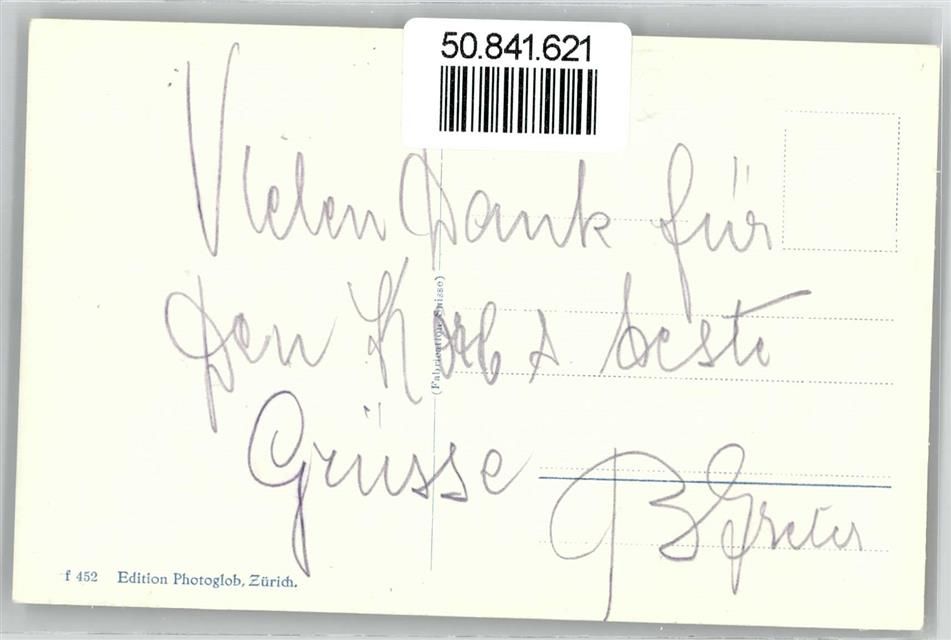 50.841.621
Vielen Dank für
Den Korb & beste
Grüsse
(Fabrication Suisse)
f 452 Edition Photoglob, Zürich.